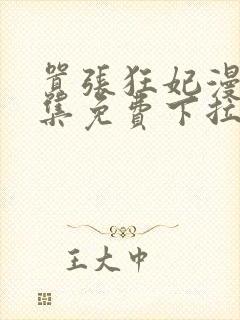 嚣張狂妃漫
集免費下拉
王大中